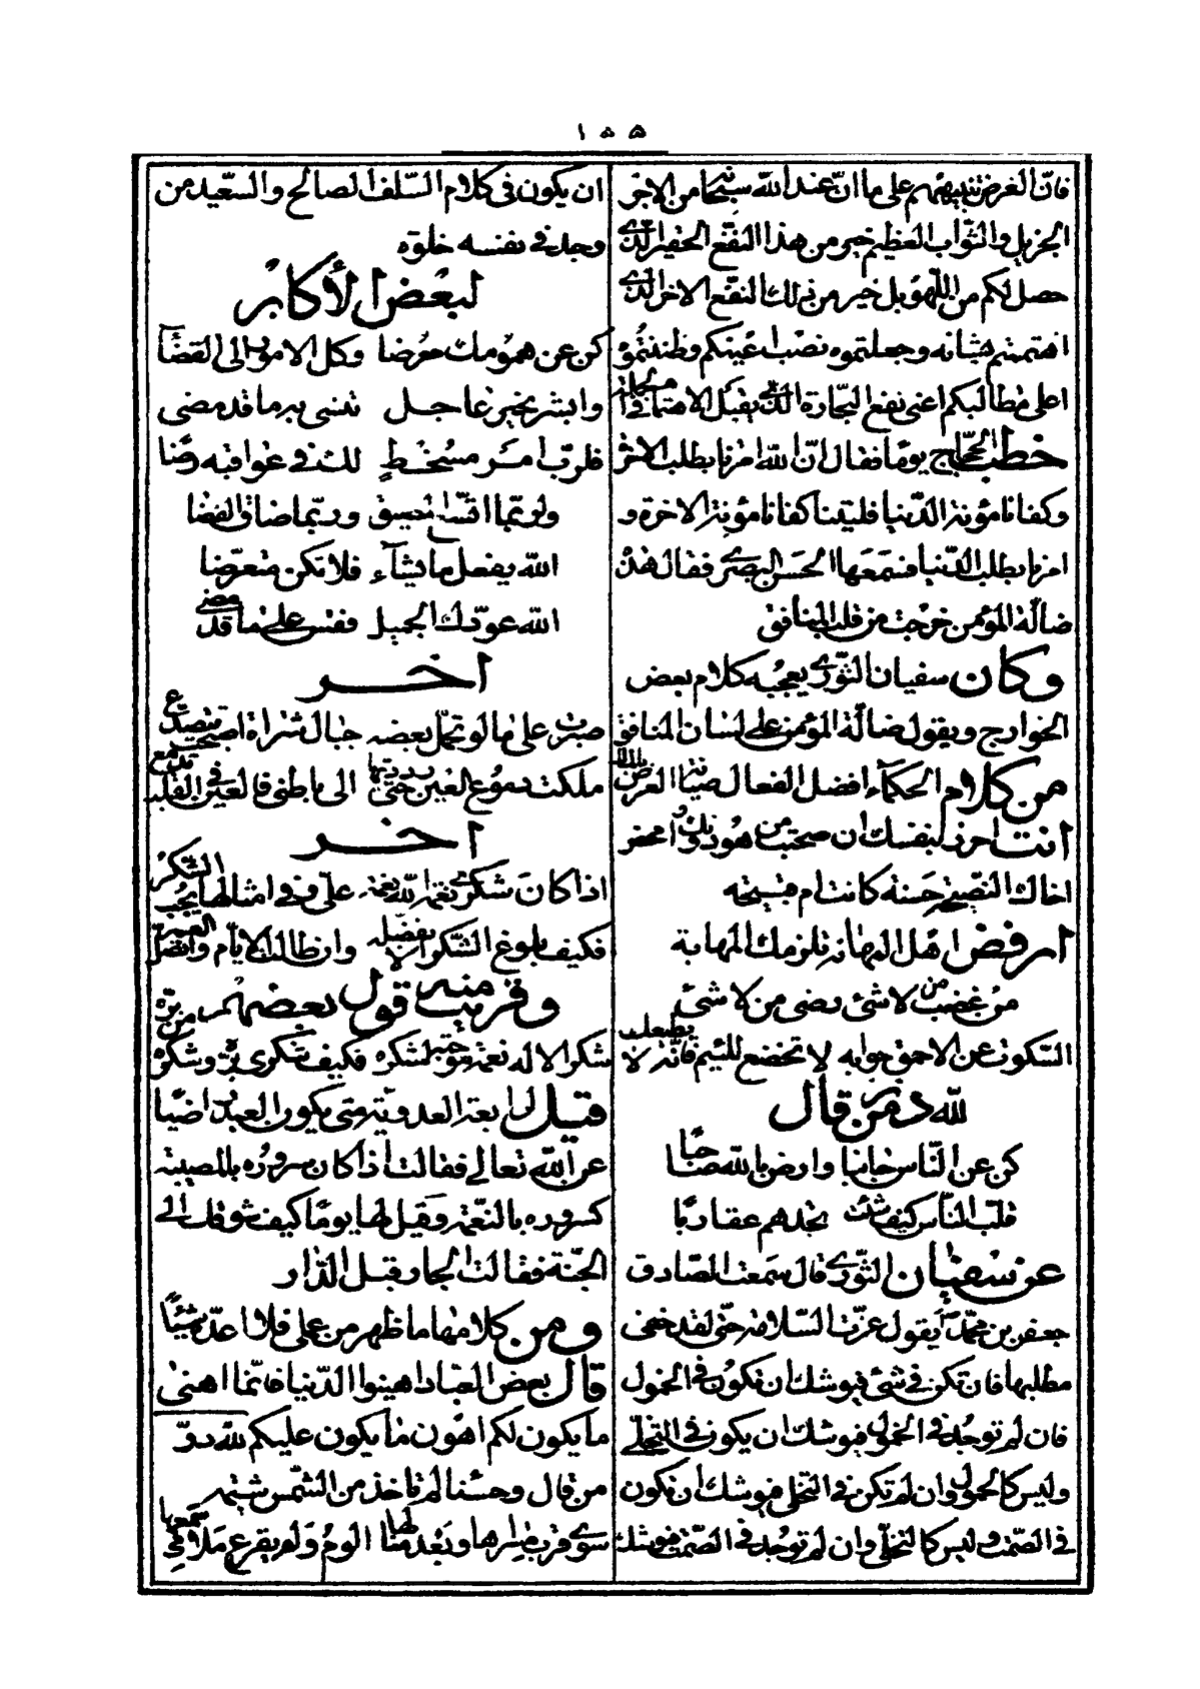 ١٥٥
فانّ الغرض تنبيههم على ما انّ عند الله سبحانه من الاجر
الجزيل والثواب العظيم خير من هذا النفع الحقير الذى
حصل لكم من اللهو بل خير من ذلك النفع الاخر الذى
اهتممتم بشانه وجعلتموه نصب اعينكم وظننتموه
اعلى مطالبكم اعنى نفع التجارة الذى يقبل الاهتمام فى
خطب الحجاج يومًا فقال انّ الله امرنا بطلب الاخرة
وكفانا مؤنة الدنيا فليتنا كفانا مؤنة الاخرة و
امرنا بطلب الدنيا فسمعها الحسن البصرى فقال هذه
ضالّة المؤمن خرجت من قلب المنافق
وكان سفيان الثورى يعجبه كلام بعض
الخوارج ويقول ضالة المؤمن على لسان المنافق
من كلام الحكماء افضل الفعال صيانة العرض بالمال
انت احرز لنفسك ان صحبت من هو دونك امحض
اخاك النصيحة حسنة كانت ام قبيحة
ارفض اهل المهانة تلزمك المهابة
من غضب من لا شئ رضى من لا شئ
السكوت عن الاحمق جوابه لا تخضع للئيم فانّه لا
لله در من قال
كن عن النّاس جانبا وارض بالله صاحبًا
قلّب النّاس كيف شئت تجدهم عقاربًا
عن سفيان الثورى قال سمعت الصادق
جعفر بن محمّد يقول عزّت السّلامة حتى لقد خفى
مطلبها فان تكن فى شئ فيوشك ان تكون فى الخمول
فان لم توجد فى الخمول فيوشك ان يكون فى التخلى
وليس كالخمول وان لم تكن فى التخلى فيوشك ان تكون
فى الصّمت وليس كالتخلّى وان لم توجد فى الصّمت فيوشك
ان يكون فى كلام السّلف الصالح والسّعيد من
وجد فى نفسه خلوة
لبعض الأكابر
كن عن همومك معرضا وكل الامور الى القضا
وابشر بخير عاجل تنسى به ما قد مضى
فلربّ امر مسخط لك فى عواقبه رضا
ولربّما اتّسع المضيق وربّما ضاق الفضا
الله يفعل ما يشاء فلا تكن متعرّضا
الله عوّدك الجميل فقس على ما قد مضى
اخر
صبرت على ما لو تحمّل بعضه جبال شراة اصبحت تتصدع
ملكت دموع العين حتى رددتها الى باطنى فالعين فى القلب تدمع
اخر
اذا كان شكرى نعمة الله نعمة علىّ وفى امثالها يجب الشكر
فكيف بلوغ الشكر الا بفضله وان طالت الايام واتصل العمر
وقريب منه قول بعضهم
شكر الاله نعمة موجبة لشكره فكيف شكرى برّه وشكره من برّه
قيل لرابعة العدوية متى يكون العبد راضيًا
عن الله تعالى فقالت اذا كان سروره بالمصيبة
كسروره بالنعمة وقيل لها يومًا كيف شوقك الى
الجنّة فقالت الجار قبل الدّار
ومن كلامها ما ظهر من عملى فلا اعدّه شيئًا
قال بعض العباد اهينوا الدّنيا فانّما اهنى
ما يكون لكم اهون ما يكون عليكم لله درّ
من قال وحسنا لم تاخذ من الشّمس شيمة
سوى قرب مسراها وبعد منالها اللوم ولم يقرع